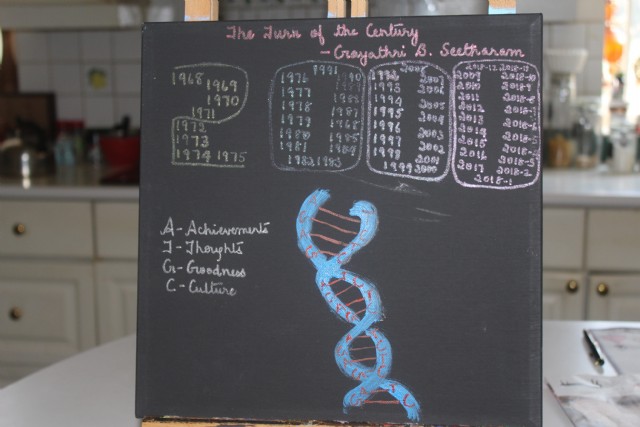 The Turn of the Century
- Gayathri B. Seetharam
1968 1969
1970
1971
1972
1973
1974 1975
1991
1976 1990
1977 1989
1978 1988
1979 1987
1980 1986
1981 1985
1984
1982 1983
2008
1992 2007
1993 2006
1994 2005
1995 2004
1996 2003
1997 2002
1998 2001
1999 2000
2018-12 2018-11
2009 2018-10
2010 2018-9
2011 2018-8
2012 2018-7
2013 2018-6
2014 2018-5
2015
2016 2018-3
2017 2018-2
2018-1
A - Achievements
T - Thoughts
G - Goodness
C - Culture